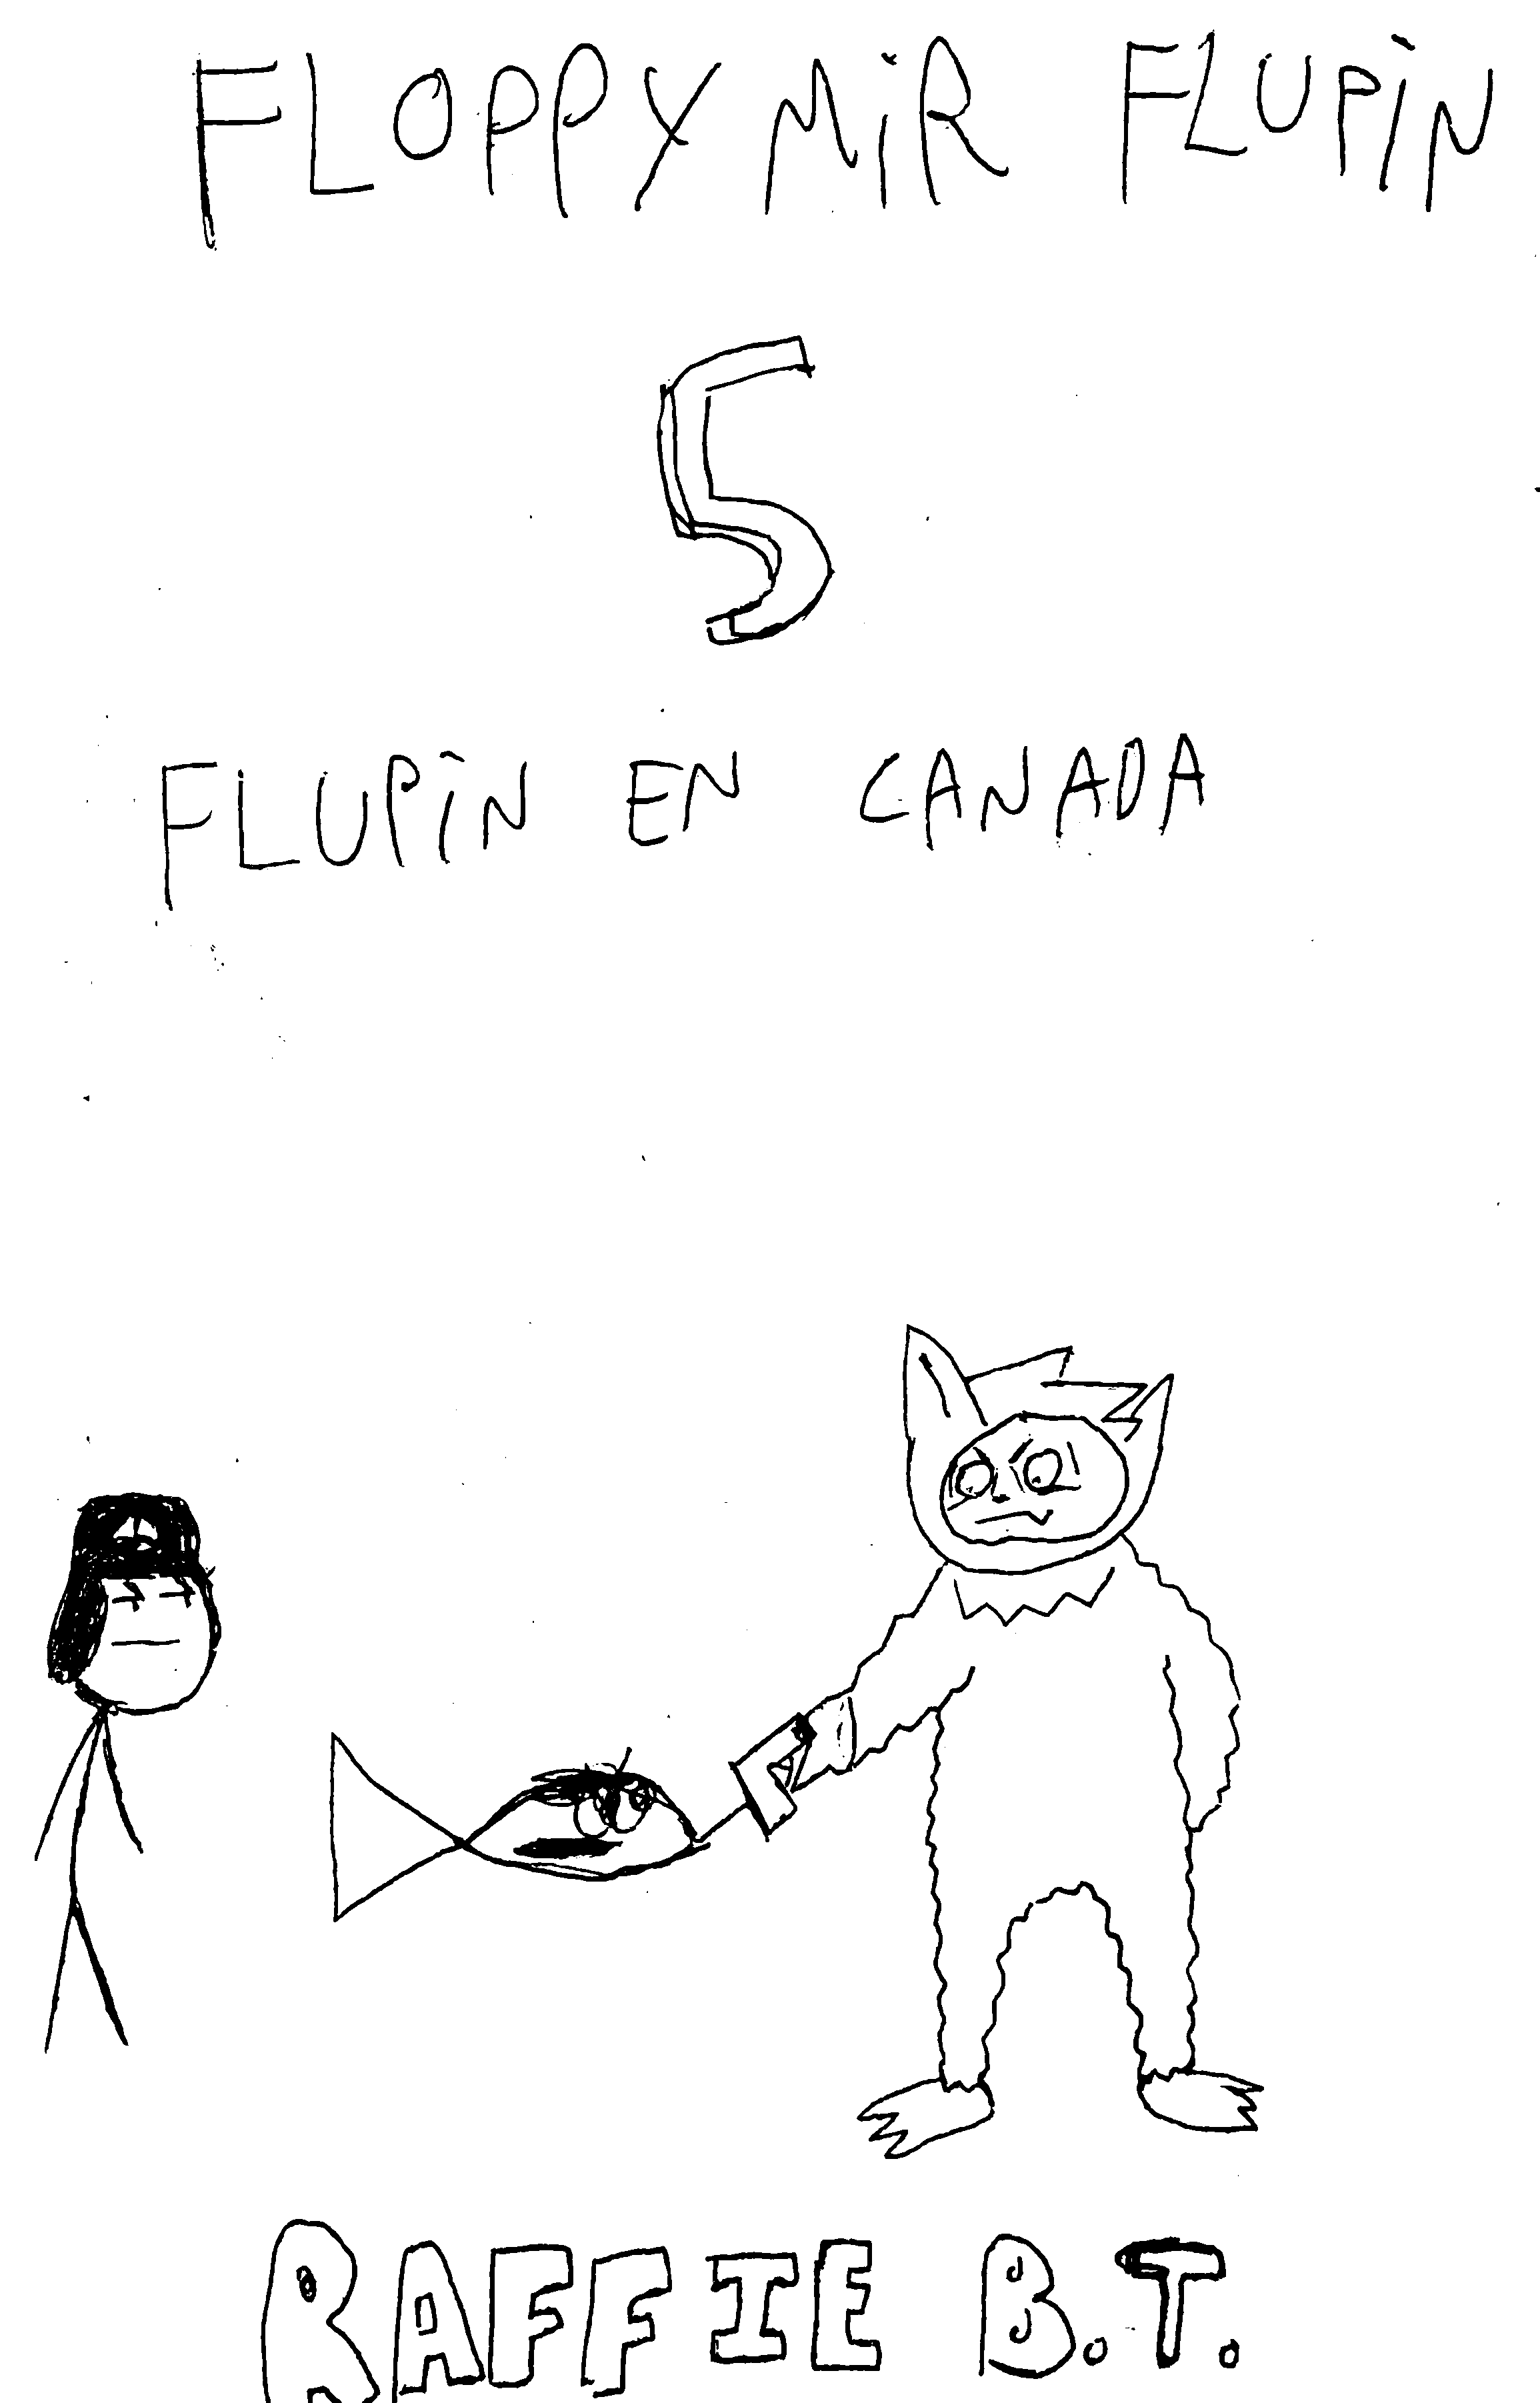 FLOPPY MiR FLUPiN
5
FLUPiN EN CANADA
RAFFIE B.T.